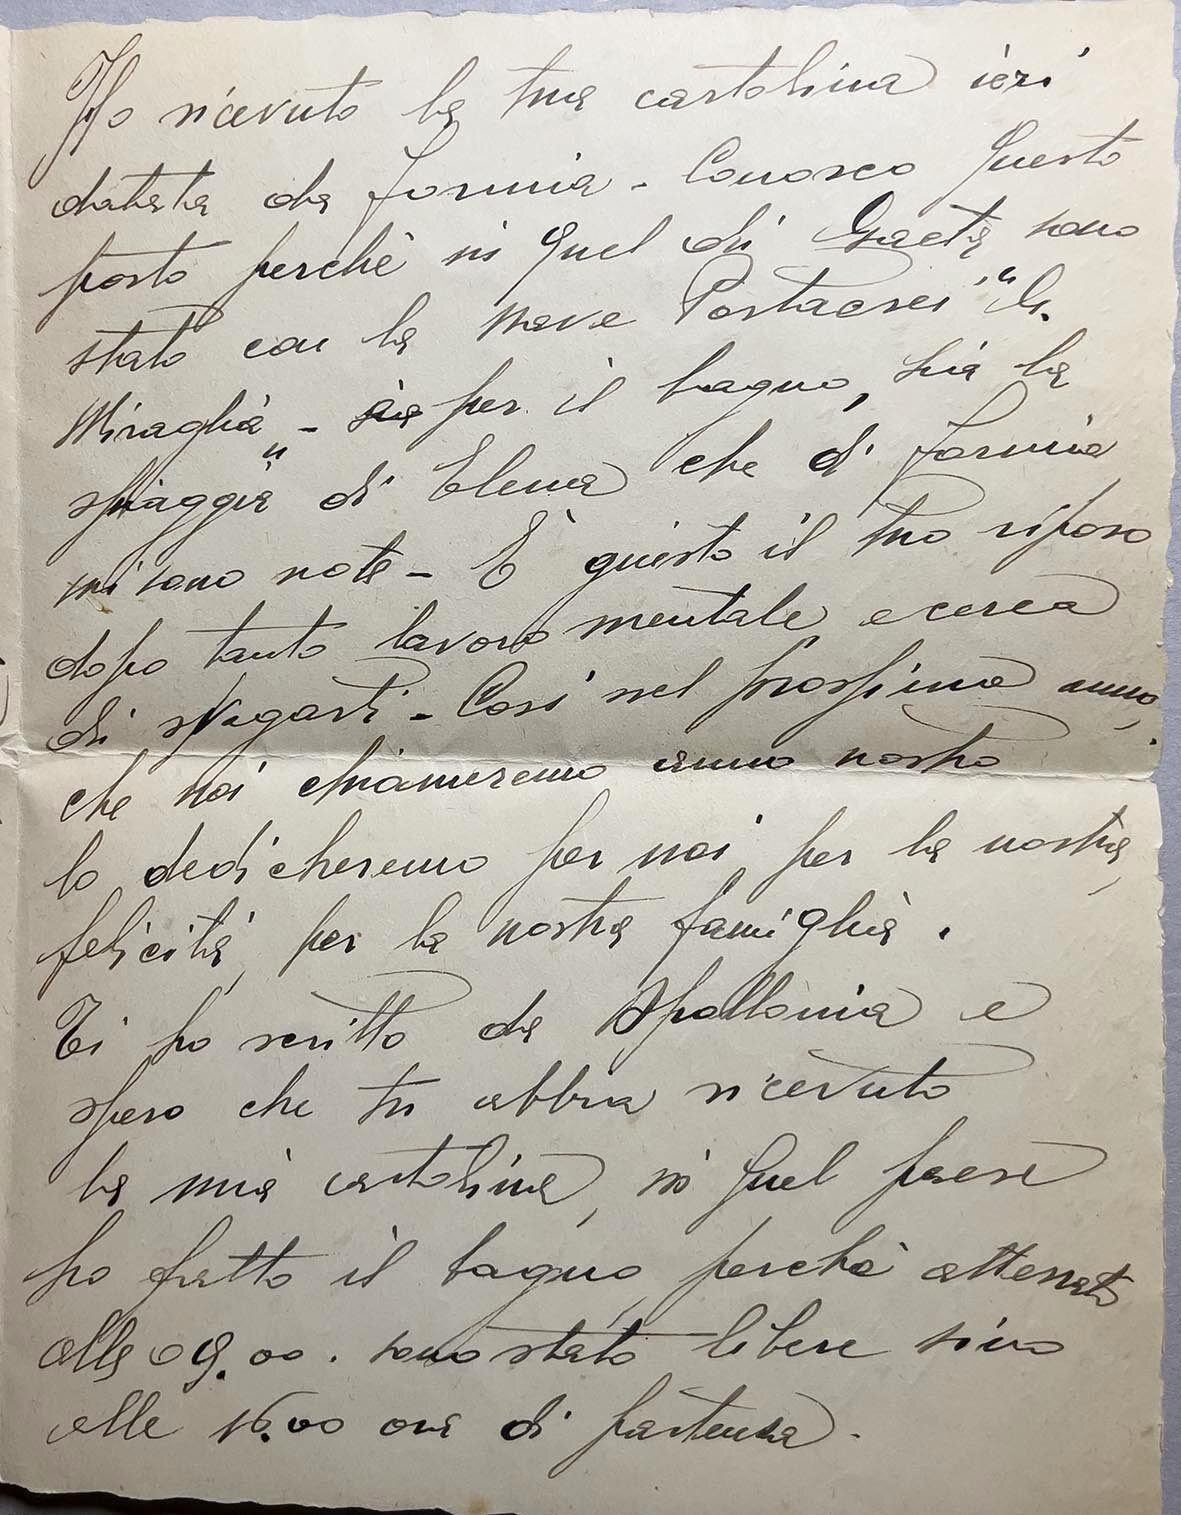 Ho ricevuto la tua cartolina ieri
datata da Formia - Conosco questo
posto perchè in quel di Gaeta sono
stato con la nave Portaerei "G.
Miraglia" - per il bagno, sia la
spiaggia di Elena che di Formia
mi sono note - È giusto il tuo riposo
dopo tanto lavoro mentale e cerca
di svagarti - Così nel prossimo anno,
che noi chiameremo anno nostro
lo dedicheremo per noi, per la nostra
felicità, per la nostra famiglia.
Ti ho scritto da Apollonia e
spero che tu abbia ricevuto
la mia cartolina, in quel paese
ho fatto il bagno, perchè atterrato
alle 09.00. sono stato libere sino
alle 16.00 ora di partenza.